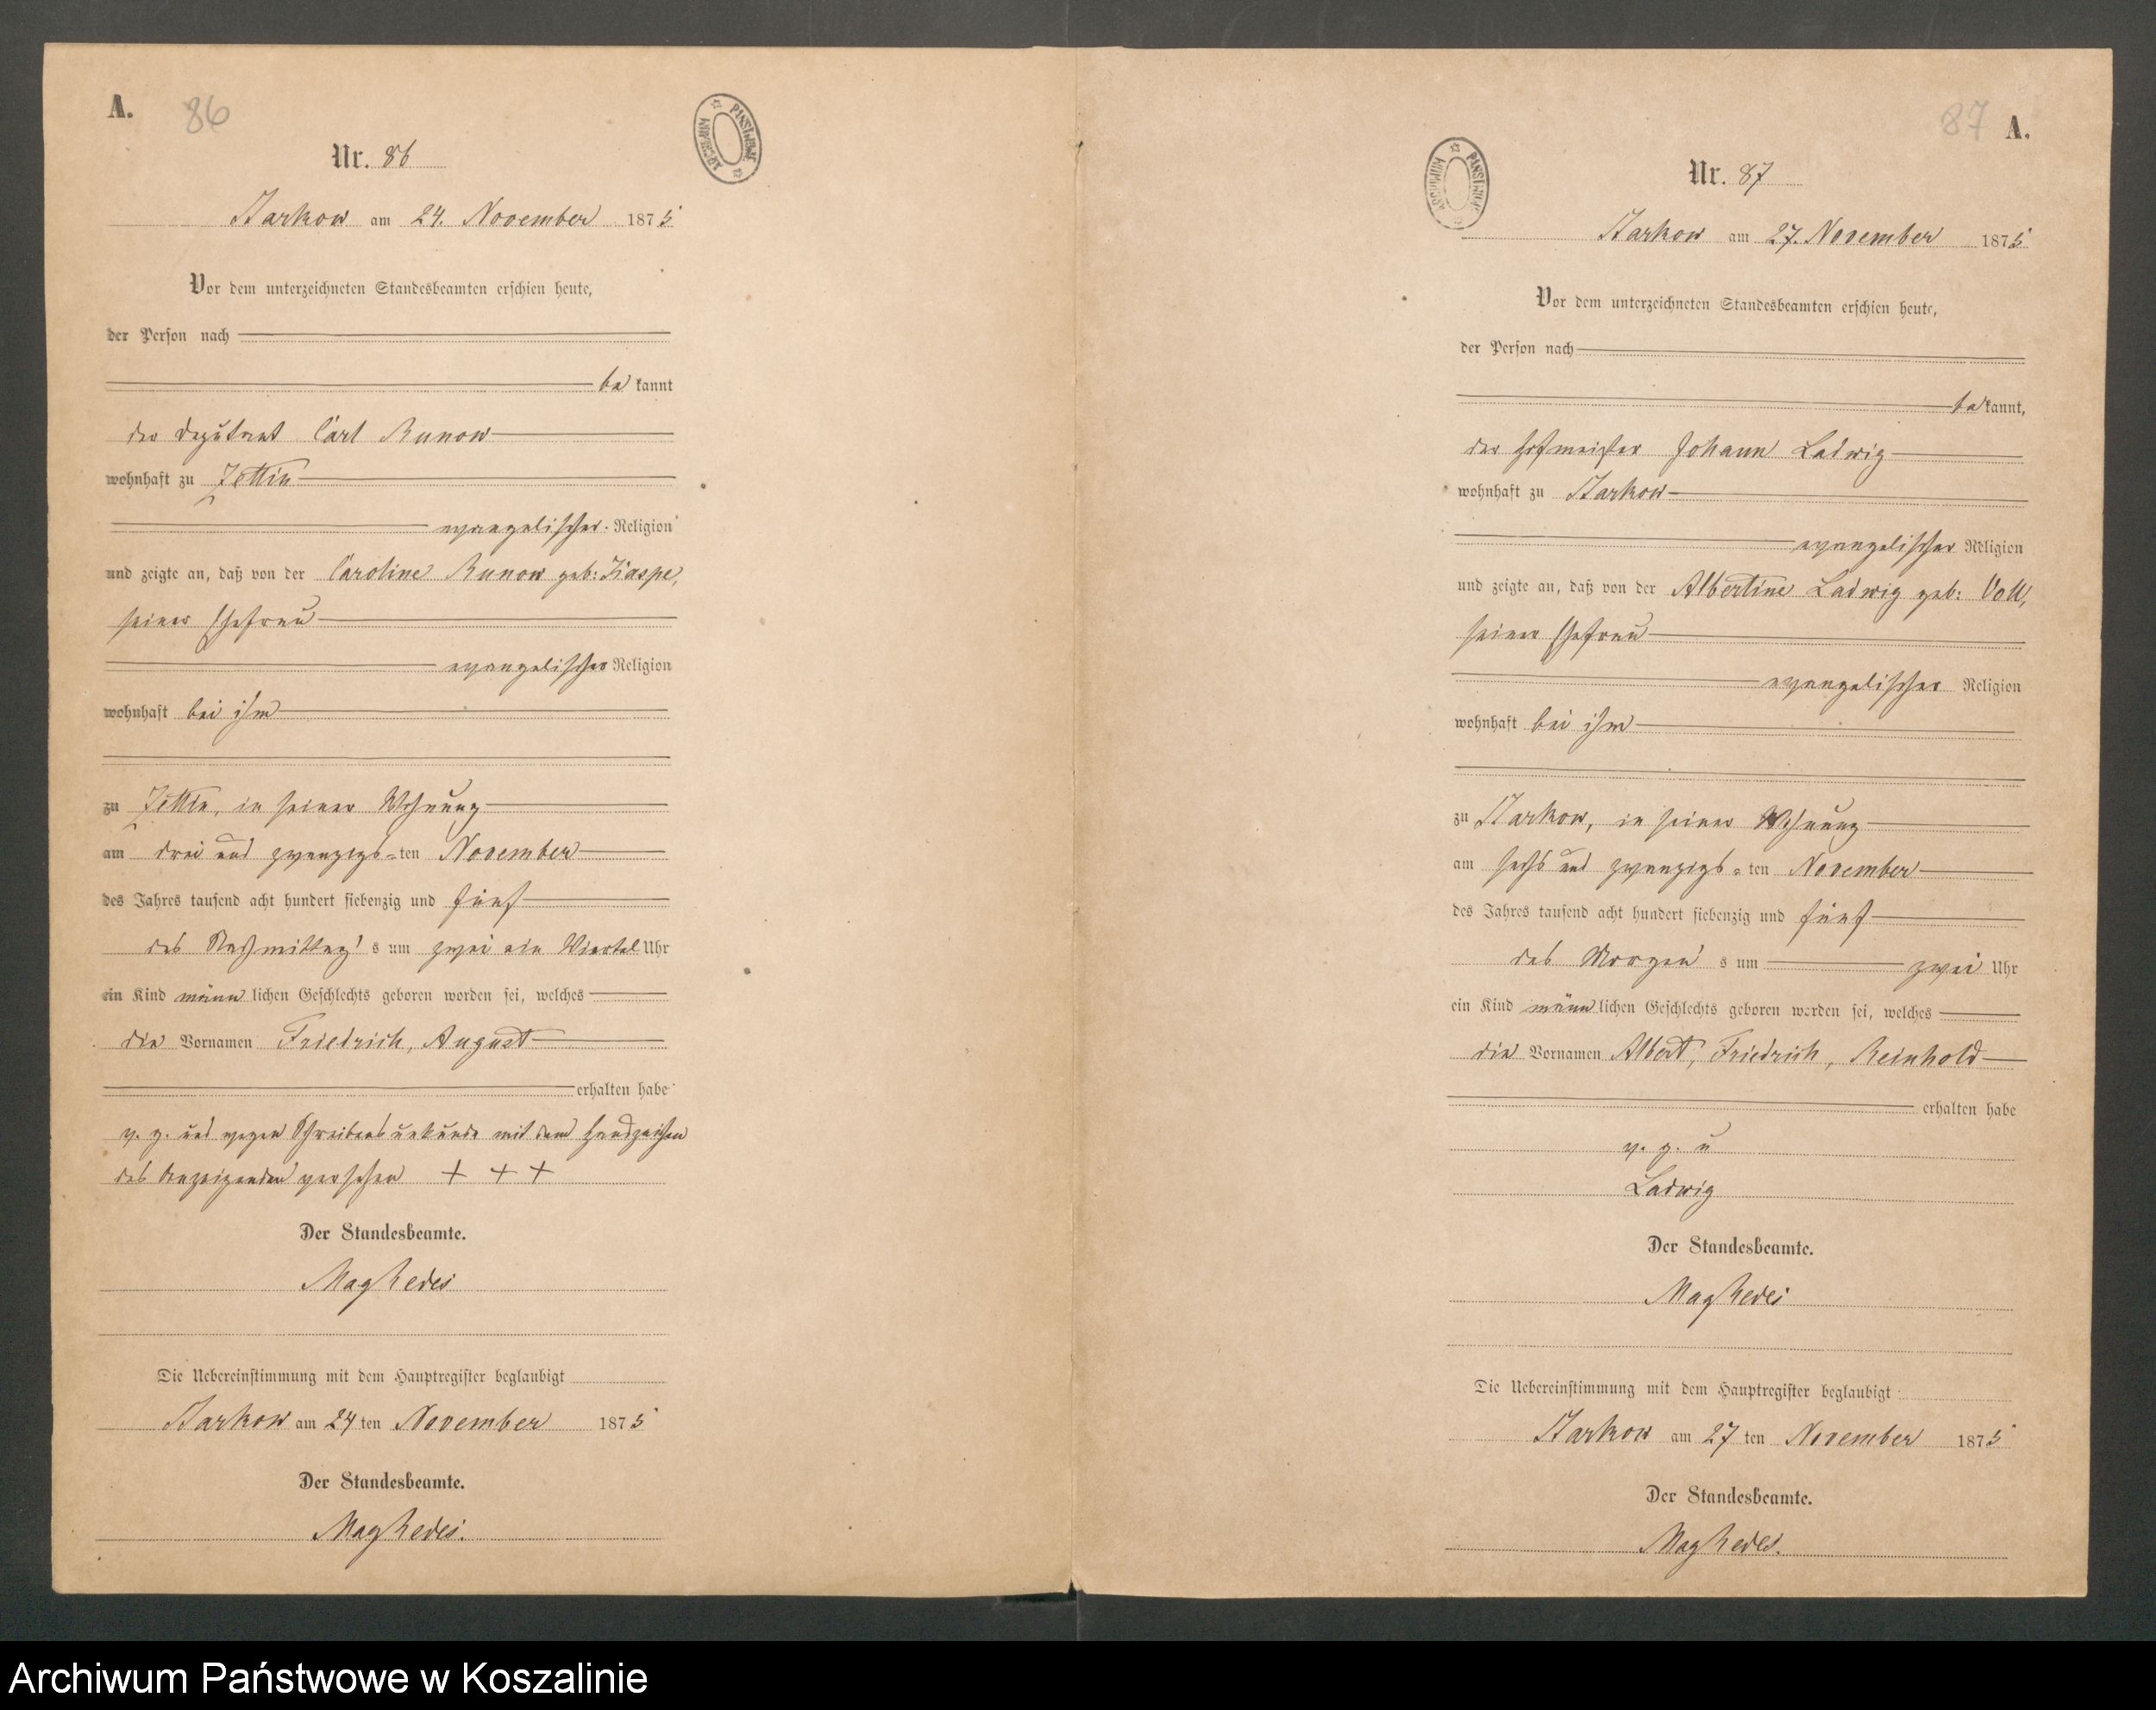 A. 86
Nr. 86
Starkow am 24. November 1875
Vor dem unterzeichneten Standesbeamten erschien heute,
der Person nach
be kannt
der Deputant Carl Runow
wohnhaft zu Zettin
evangelischer Religion
und zeigte an, daß von der Caroline Runow geb:
seiner Ehefrau
evangelischer Religion
wohnhaft bei ihm
zu Zettin, in seiner Wohnung
am drei und zwanzigs-ten November
des Jahres tausend acht hundert siebenzig und fünf
des Nachmittag's um zwei ein Viertel Uhr
ein Kind männlichen Geschlechts geboren worden sei, welches
die Vornamen Friedrich, August
erhalten habe
v. g. und wegen Schreibensunkunde mit dem Handzeichen
des Anzeigenden versehen + + +
Der Standesbeamte.
Die Uebereinstimmung mit dem Hauptregister beglaubigt
Starkow am 24 ten November 1875
Der Standesbeamte.
ARCHIWUM PAŃSTWOWE
87 A.
Nr. 87
Starkow am 27. November 1875
Vor dem unterzeichneten Standesbeamten erschien heute,
der Person nach
be kannt,
der Hofmeister Johann Ladwig
wohnhaft zu Starkow
evangelischer Religion
und zeigte an, daß von der Albertine Ladwig geb: Voll,
seiner Ehefrau
evangelischer Religion
wohnhaft bei ihm
zu Starkow, in seiner Wohnung
am sechs und zwanzigs-ten November
des Jahres tausend acht hundert siebenzig und fünf
des Morgen's um zwei Uhr
ein Kind männlichen Geschlechts geboren worden sei, welches
die Vornamen Albert, Friedrich, Reinhold
erhalten habe
v. g. u
Ladwig
Der Standesbeamte.
Die Uebereinstimmung mit dem Hauptregister beglaubigt
Starkow am 27 ten November 1875
Der Standesbeamte.
ARCHIWUM PAŃSTWOWE
Archiwum Państwowe w Koszalinie